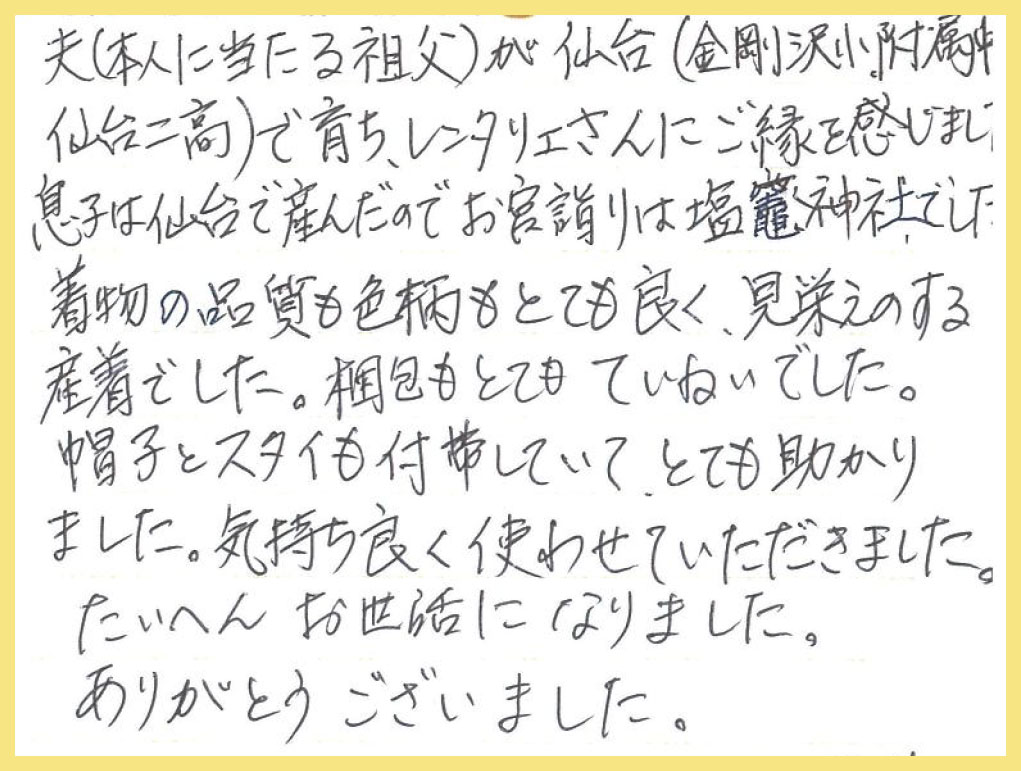 夫(本人に当たる祖父)が仙台(金剛沢小、附属中
仙台二高)で育ち、レンタリエさんにご縁を感じまし
息子は仙台で産んだのでお宮詣りは塩竈神社でした
着物の品質も色柄もとても良く、見栄えのする
産着でした。梱包もとても ていねいでした。
帽子とスタイも付帯していて、とても助かり
ました。気持ち良く使わせていただきました。
たいへん お世話になりました。
ありがとう ございました。